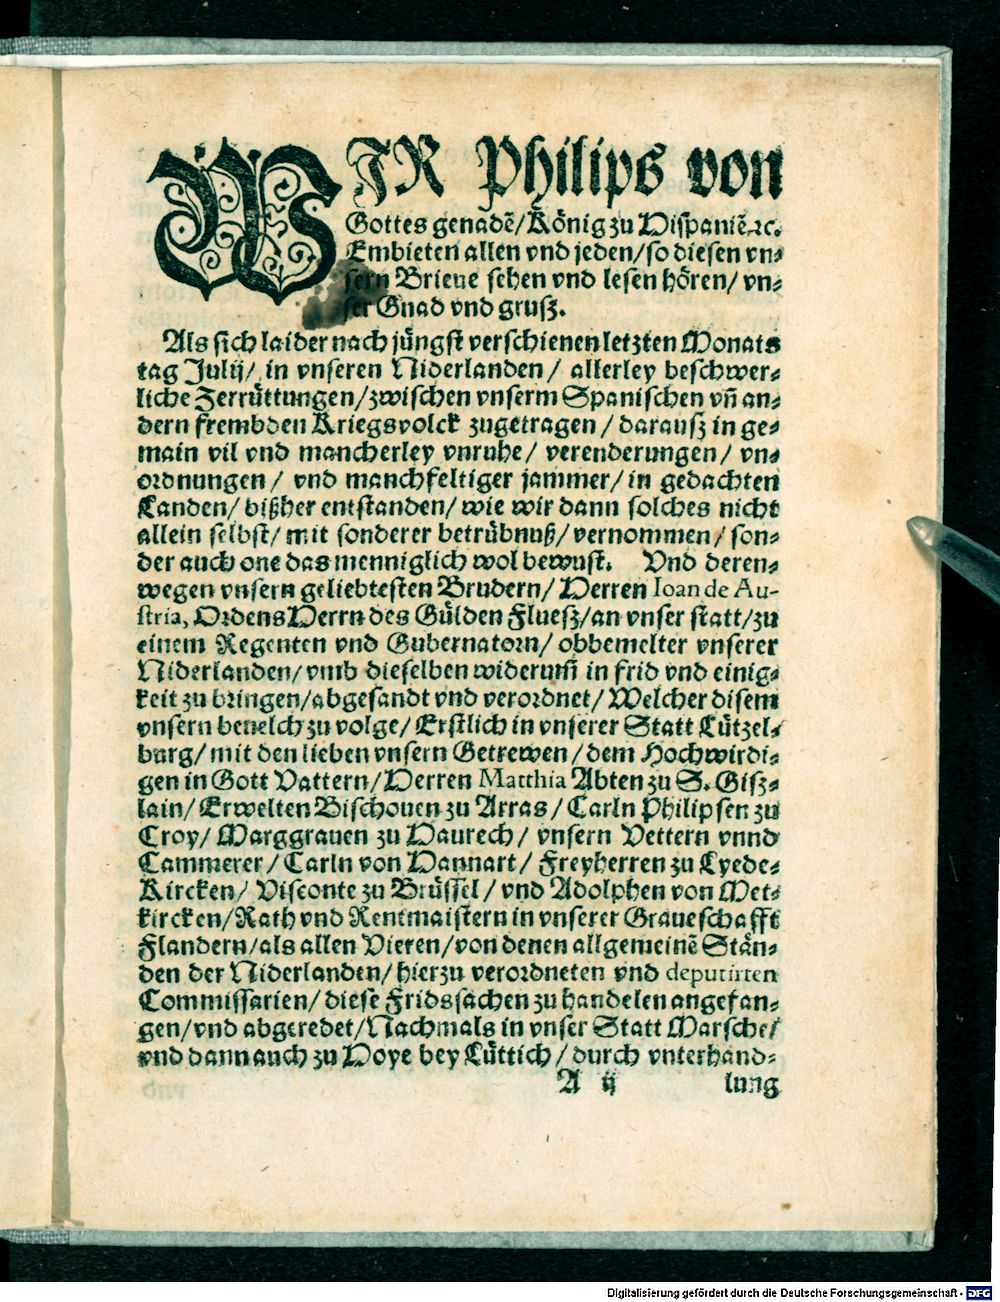 WJR Philips von
Gottes genadē/König zu Hispaniē ꝛc.
Embieten allen vnd jeden/so diesen vn⸗
sern Brieue sehen vnd lesen hören/ vn⸗
ser Gnad vnd grusz.
Als sich laider nach jüngst verschienen letzten Monats
tag Julij/ in vnseren Niderlanden/ allerley beschwer⸗
liche Zerrüttungen/zwischen vnserm Spanischen vn̄ an⸗
dern frembden Kriegsvolck zugetragen/ darausz in ge⸗
main vil vnd mancherley vnruhe/ verenderungen/ vn⸗
ordnungen/ vnd manchfeltiger jammer/ in gedachten
Landen/ bißher entstanden/ wie wir dann solches nicht
allein selbst/ mit sonderer betrübnuß/ vernommen/ son⸗
der auch one das menniglich wol bewust. Vnd deren⸗
wegen vnsern geliebtesten Brudern/ Herren Ioan de Au-
stria, Ordens Herrn des Gülden Fluesz/an vnser statt/zu
einem Regenten vnd Gubernatorn/ obbemelter vnserer
Niderlanden/ vmb dieselben widerum̄ in frid vnd einig⸗
keit zu bringen/abgesandt vnd verordnet/ Welcher disem
vnsern beuelch zu volge/ Erstlich in vnserer Statt Lützel⸗
burg/ mit den lieben vnsern Getrewen/ dem Hochwirdi⸗
gen in Gott Vattern/ Herren Matthia Abten zu S. Gisz⸗
lain/ Erwelten Bischouen zu Arras/ Carln Philipsen zu
Croy/ Marggrauen zu Haurech/ vnsern Vettern vnnd
Cammerer/ Carln von Hannart/ Freyherren zu Lyede⸗
Kircken/ Visconte zu Brüssel/ vnd Adolphen von Met⸗
kircken/Rath vnd Rentmaistern in vnserer Graueschafft
Flandern/als allen Vieren/von denen allgemeinē Stän⸗
den der Niderlanden/ hierzu verordneten vnd deputirten
Commissarien/ diese Fridssachen zu handelen angefan⸗
gen/vnd abgeredet/Nachmals in vnser Statt Marsche/
vnd dann auch zu Hoye bey Lüttich/ durch vnterhand⸗
A ij lung
Digitalisierung gefördert durch die Deutsche Forschungsgemeinschaft - DFG